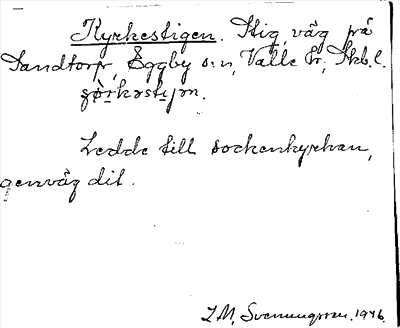 Kyrkestigen. Stig, väg på
Sandtorp, Eggby s:n, Valle hd, Skb.l.
Ledde till sockenkyrkan,
genväg dit.
L.M. Svenungsson. 1946.